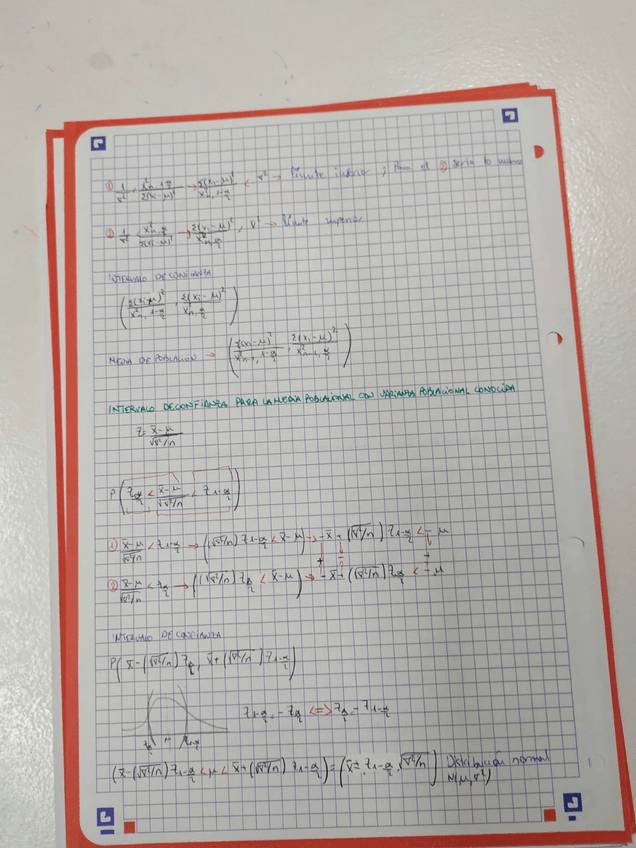 ① 1/σ² < x²n,1-α/2 / Σ(xi-μ)² → Σ(xi-μ)² / x²n,1-α/2 < σ² → límite inferior ; Para el ② sería lo mismo
② 1/σ² < x²n,α/2 / Σ(xi-μ)² → Σ(xi-μ)² / x²n,α/2 , σ² → límite superior
INTERVALO DE CONFIANZA
( Σ(xi-μ)² / x²n,1-α/2 , Σ(xi-μ)² / x²n,α/2 )
MEDIA DE POBLACIÓN → ( Σ(xi-μ)² / x²n-1,1-α/2 , Σ(xi-μ)² / x²n-1,α/2 )
INTERVALO DE CONFIANZA PARA LA MEDIA POBLACIONAL CON VARIANZA POBLACIONAL CONOCIDA
Z = x̄-μ / √σ²/n
P( Zα/2 < x̄-μ / √σ²/n < Z1-α/2 )
① x̄-μ / √σ²/n < Z1-α/2 → ((√σ²/n) Z1-α/2 < x̄-μ) → -x̄ + (√σ²/n) Z1-α/2 < -μ
② x̄-μ / √σ²/n < Zα/2 → ((√σ²/n) Zα/2 < x̄-μ) → -x̄ + (√σ²/n) Zα/2 < -μ
INTERVALO DE CONFIANZA
P( x̄-(√σ²/n) Zα/2 , x̄+(√σ²/n) Z1-α/2 )
Z1-α/2 = -Zα/2 <=> Zα/2 = -Z1-α/2
Zα/2 μ Z1-α/2
(x̄-(√σ²/n) Z1-α/2 < μ < x̄+(√σ²/n) Z1-α/2) = (x̄ ± Z1-α/2 , √σ²/n) Distribución normal
N(μ,σ²)